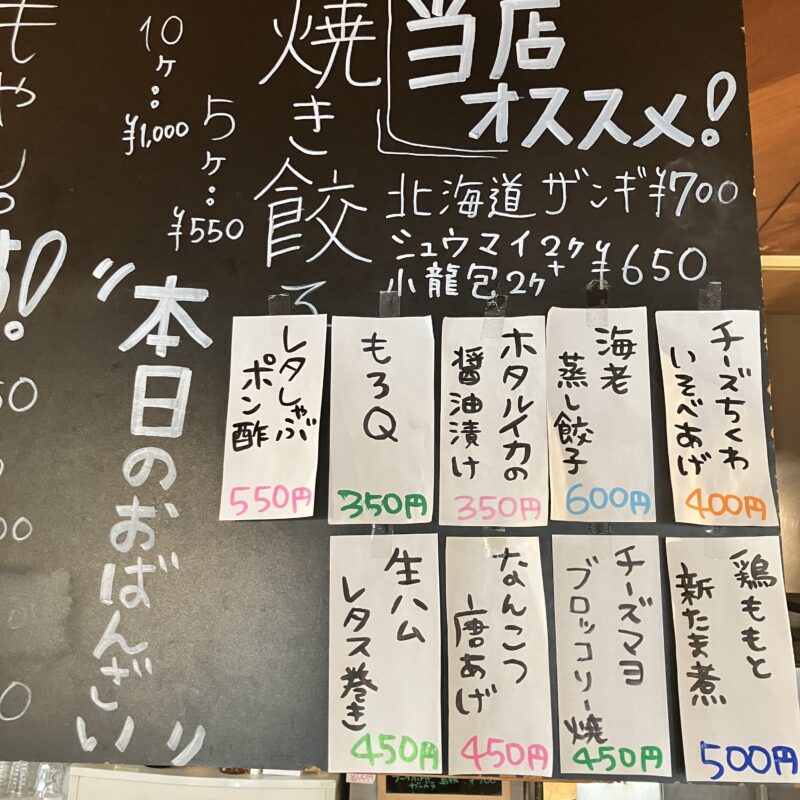 当店
オススメ!
北海道 ザンギ ¥700
シュウマイ2ヶ+
小龍包2ヶ ¥650
焼き餃子
5ヶ:¥550
10ヶ:¥1,000
もやし
"本日のおばんざい"
チーズちくわ
いそべあげ
400円
海老
蒸し餃子
600円
ホタルイカの
醤油漬け
350円
もろQ
350円
レタしゃぶ
ポン酢
550円
鶏ももと
新たま煮
500円
チーズマヨ
ブロッコリー焼
450円
なんこつ
唐あげ
450円
生ハム
レタス巻き
450円